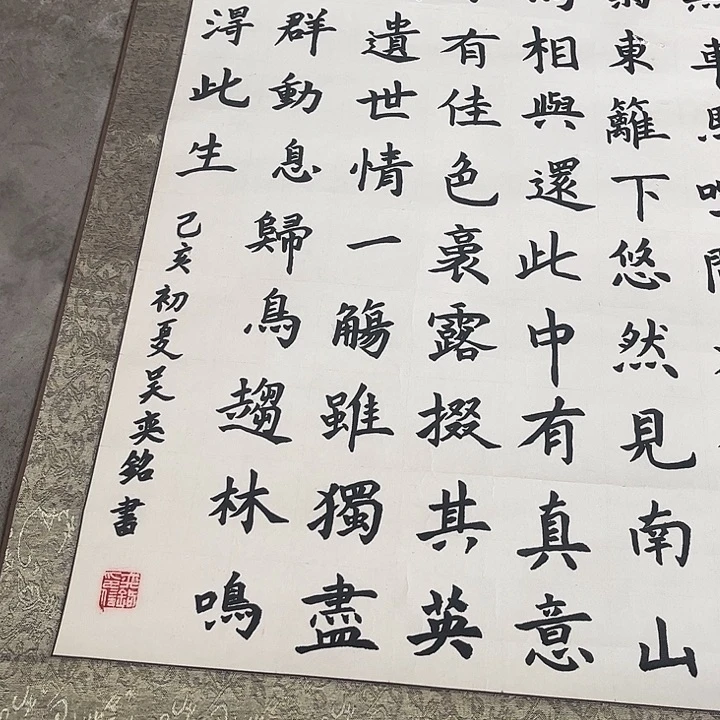 車馬
東籬下悠然見南山
相與還此中有真意
有佳色裛露掇其英
遺世情一觴雖獨盡
群動息歸鳥趨林鳴
淂此生
己亥初夏吴奕銘書